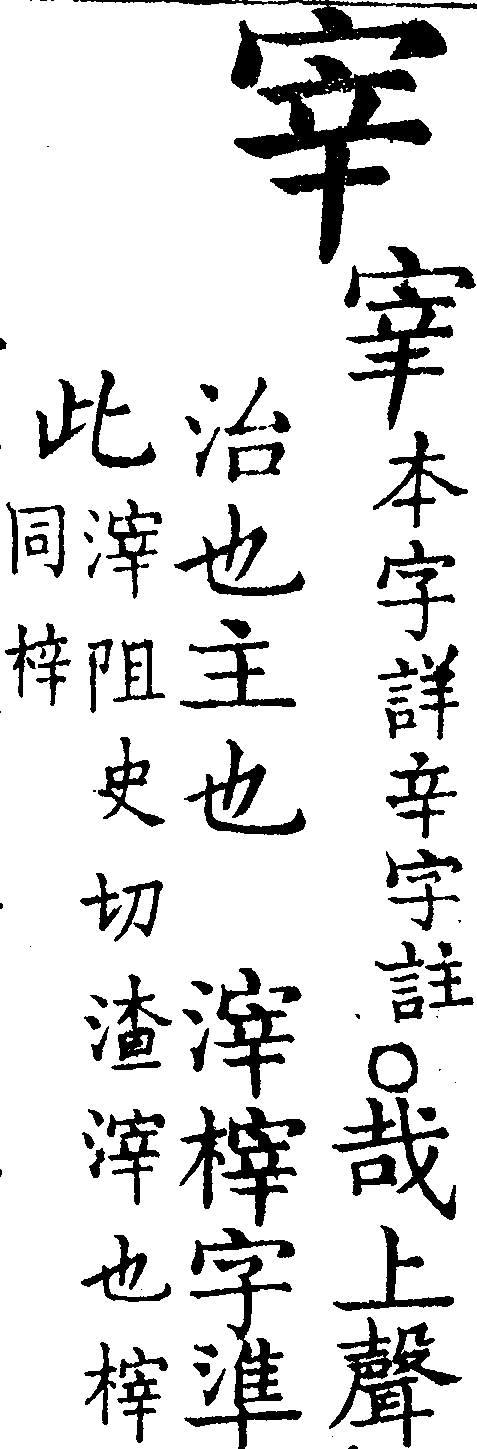 宰
𡨧本字詳辛字註○哉上聲
治也主也　滓榟字準
此
滓阻史切渣滓也榟
同梓